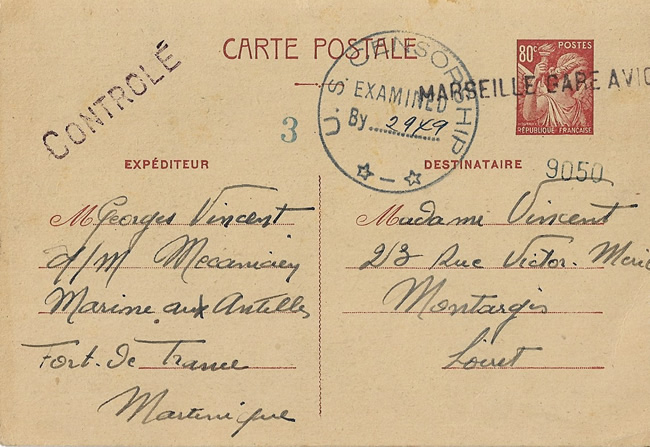 CARTE POSTALE
CONTROLÉ
U.S. CENSORSHIP
EXAMINED
By 2949
MARSEILLE GARE AVIO
80c POSTES
RÉPUBLIQUE FRANÇAISE
3
9050
EXPÉDITEUR
M Georges Vincent
d/m Mecanicien
Marine aux Antilles
Fort-de France
Martinique
DESTINATAIRE
Madame Vincent
23 Rue Victor-
Montargis
Loiret